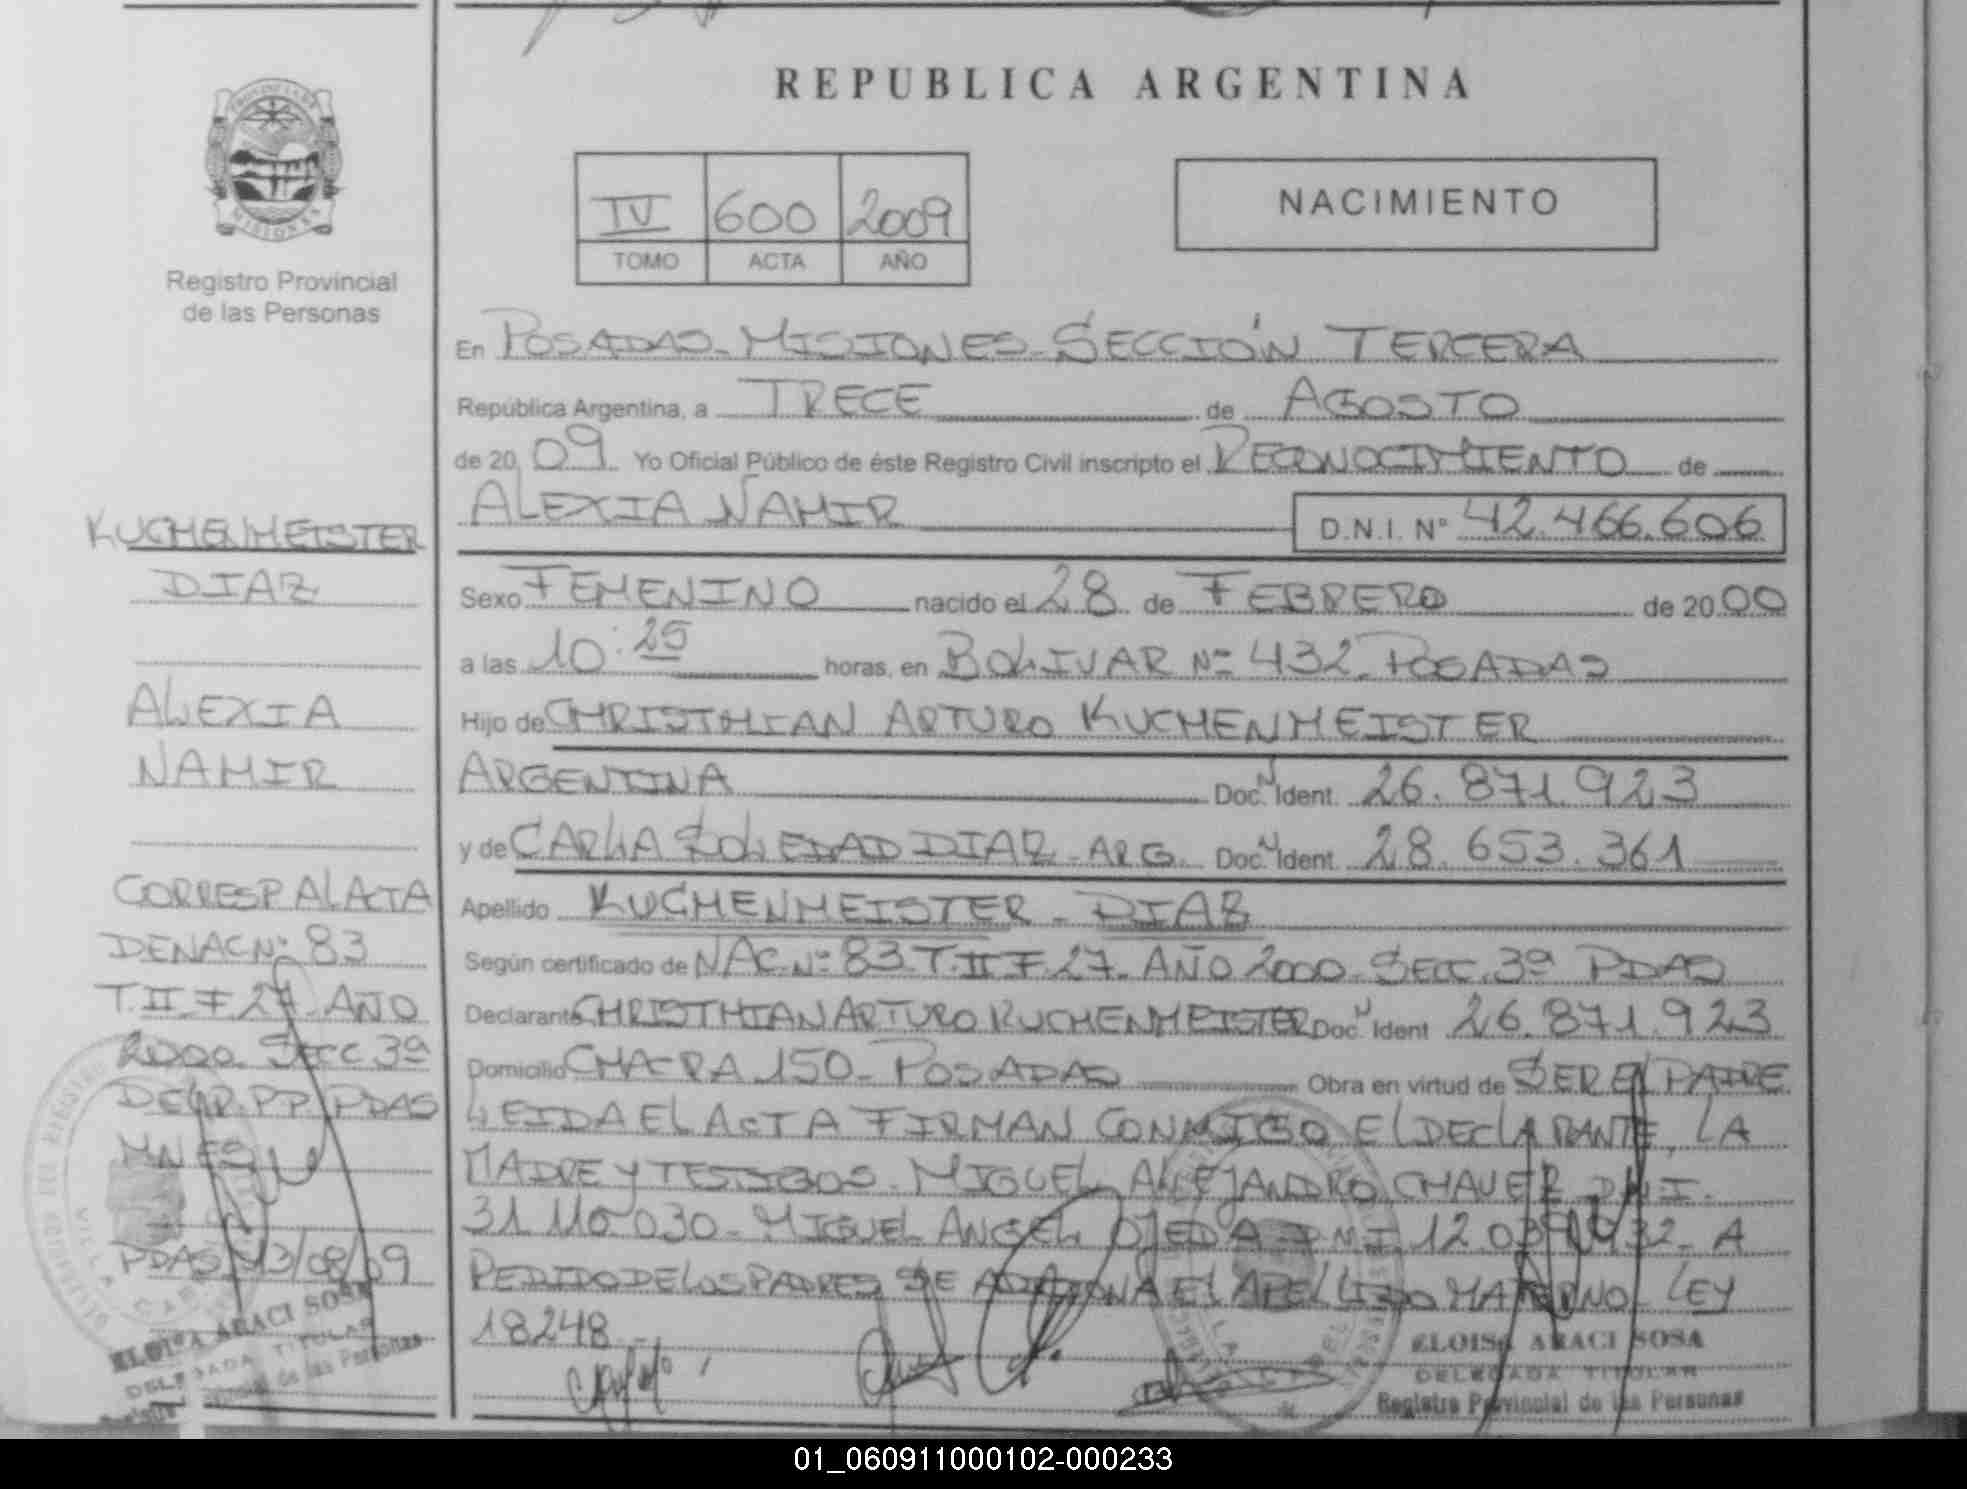 REPUBLICA ARGENTINA
PROVINCIA DE
MISIONES
Registro Provincial
de las Personas
IV 600 2009
TOMO ACTA AÑO
NACIMIENTO
En POSADAS-MISIONES-SECCIÓN TERCERA
República Argentina, a TRECE de AGOSTO
de 20 09 Yo Oficial Público de éste Registro Civil inscripto el RECONOCIMIENTO de
ALEXIA NAMIR D.N.I. Nº 42.466.606
Sexo FEMENINO nacido el 28 de FEBRERO de 20 00
a las 10:25 horas, en BOLIVAR Nº 432-POSADAS
Hijo de CHRISTHIAN ARTURO KUCHENMEISTER
ARGENTINA Doc. N Ident. 26.871.923
y de CARLA SOLEDAD DIAZ-ARG. Doc. N Ident. 28.653.361
Apellido KUCHENMEISTER-DIAZ
Según certificado de NAC.Nº 83.T.II F.27-AÑO 2000-SECC.3ª PDAS
Declarante CHRISTHIAN ARTURO KUCHENMEISTER Doc. N Ident 26.871.923
Domicilio CHACRA 150-POSADAS Obra en virtud de SER EL PADRE
LEIDA EL ACTA FIRMAN CONMIGO EL DECLARANTE, LA
MADRE Y TESTIGOS-MIGUEL ALEJANDRO CHAVEZ D.N.I.
31.110.030-MIGUEL ANGEL OJEDA D.N.I. 12.039.932-A
PEDIDO DE LOS PADRES SE ADICIONA EL APELLIDO MATERNO-LEY
18248-
ELOISA ARACI SOSA
DELEGADA TITULAR
Registro Provincial de las Personas
KUCHENMEISTER
DIAZ
ALEXIA
NAMIR
CORRESP AL ACTA
DE NAC Nº 83
T.II-F.27-AÑO
2000-SECC 3ª
DEL R.PP PDAS
MNES
PDAS 13/08/09
ELOISA ARACI SOSA
DELEGADA TITULAR
Registro Provincial de las Personas
01_060911000102-000233